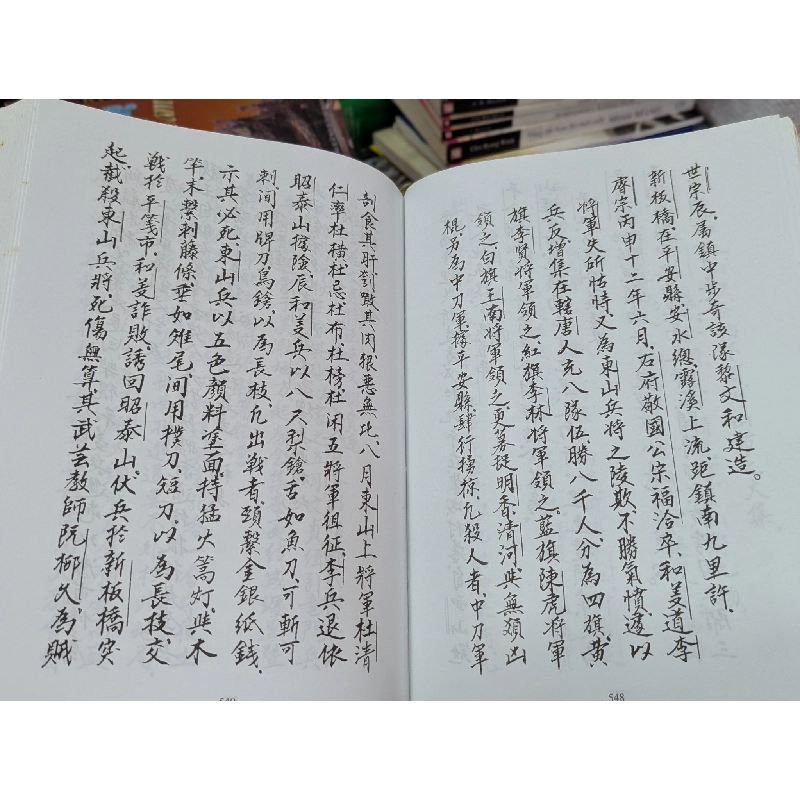 世宗辰、属鎮中步奇該隊黎文和建造。
新板橋、在平安縣安水總露溪上流、距鎮南九里許、
睿宗丙申十二年六月、石府敬國公宗福洽卒、和美道李
將軍失所怙恃、又為東山兵將之陵欺、不勝氣憤、遂以
兵反、增集在轄唐人充八隊伍、勝八千人、分為四旗、黃
旗李賢將軍領之、紅旗李林將軍領之、藍旗陳虎將軍
領之、白旗王南將軍領之、更募徒明香清河與無賴凶
棍、另為中刀軍、據平安縣肆行擄掠、凡殺人者、中刀軍
548
剖食其肝、刳其肉、狠惡無比、八月東山上將軍杜清
仁率杜橫杜忌杜布杜榜杜閑五將軍徂征、李兵退依
昭泰山據險、辰和美兵以八尺犁鎗、舌如魚刀、可斬可
刺、間用牌刀鳥鎗、以為長枝、凡出戰者、頭繫金銀紙錢、
示其必死、東山兵以五色顏料塗面、持猛火篙灯、與木
竿、末繫刺藤條、垂如雉尾、間用撲刀、短刀、以為長技、交
戰於平箋市、和美詐敗、誘回昭泰山、伏兵於新板橋、突
起截殺、東山兵將、死傷無算、其武芸教師阮柳久為賊
549